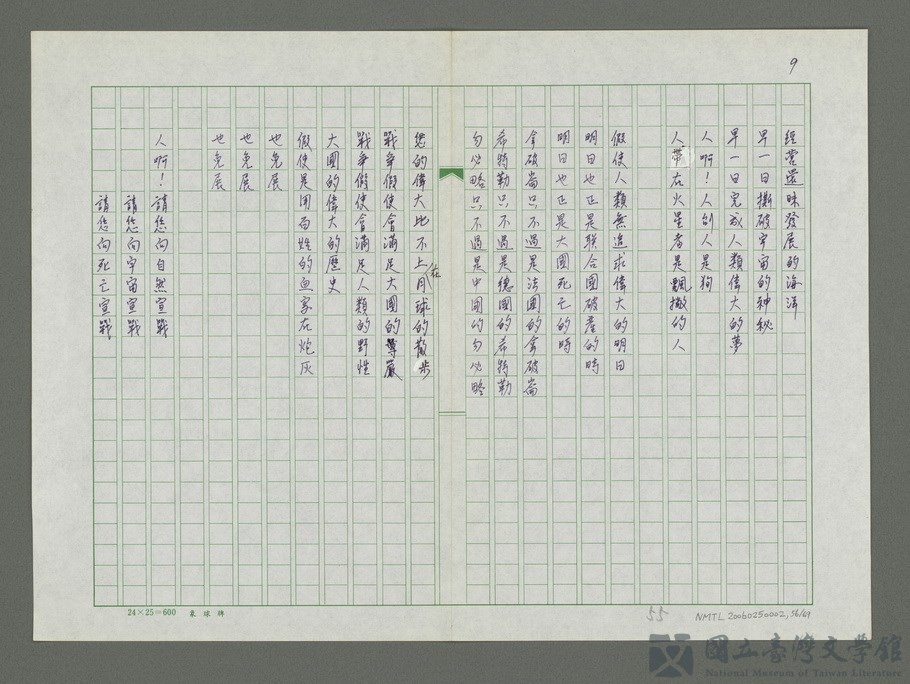 9
經營還昧發展的海洋
早一日撕破宇宙的神秘
早一日完成人類偉大的夢
人啊！人創人是狗
人帶在火星者是飄撒的人
假使人類無追求偉大的明日
明日也正是聯合國破產的時
明日也正是大國死亡的時
拿破崙只不過是法國的拿破崙
希特勒只不過是德國的希特勒
勾必略只不過是中國的勾必略
您的偉大比不上在月球的散步
戰爭假使會滿足大國的尊嚴
戰爭假使會滿足人類的野性
大國的偉大的歷史
假使是用百姓的血寫在炮灰
也免展
也免展
也免展
人啊！請您向自然宣戰
請您向宇宙宣戰
請您向死亡宣戰
24×25=600 象球牌
55
NMTL 20060250002, 56/69
國立臺灣文學館
National Museum of Taiwan Literature